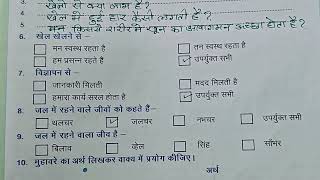 3. खेलों से क्या लाभ है?
4. खेल में हुई हार कैसी लगती है?
5. मन किससे शरीर में खून का आवागमन अच्छा होता है?
6. खेल खेलने से -
मन स्वस्थ रहता है तन स्वस्थ रहता है
हम प्रसन्न रहते है उपर्युक्त सभी
7. विज्ञापन से -
जानकारी मिलती मदद मिलती है
हमारा कार्य सरल होता है उपर्युक्त सभी
8. जल में रहने वाले जीवों को कहते है-
थलचर जलचर नभचर उपर्युक्त सभी
9. जल में रहने वाला जीव है -
बिलाव व्हेल सिंह साँभर
10. मुहावरे का अर्थ लिखकर वाक्य में प्रयोग कीजिए।
अर्थ